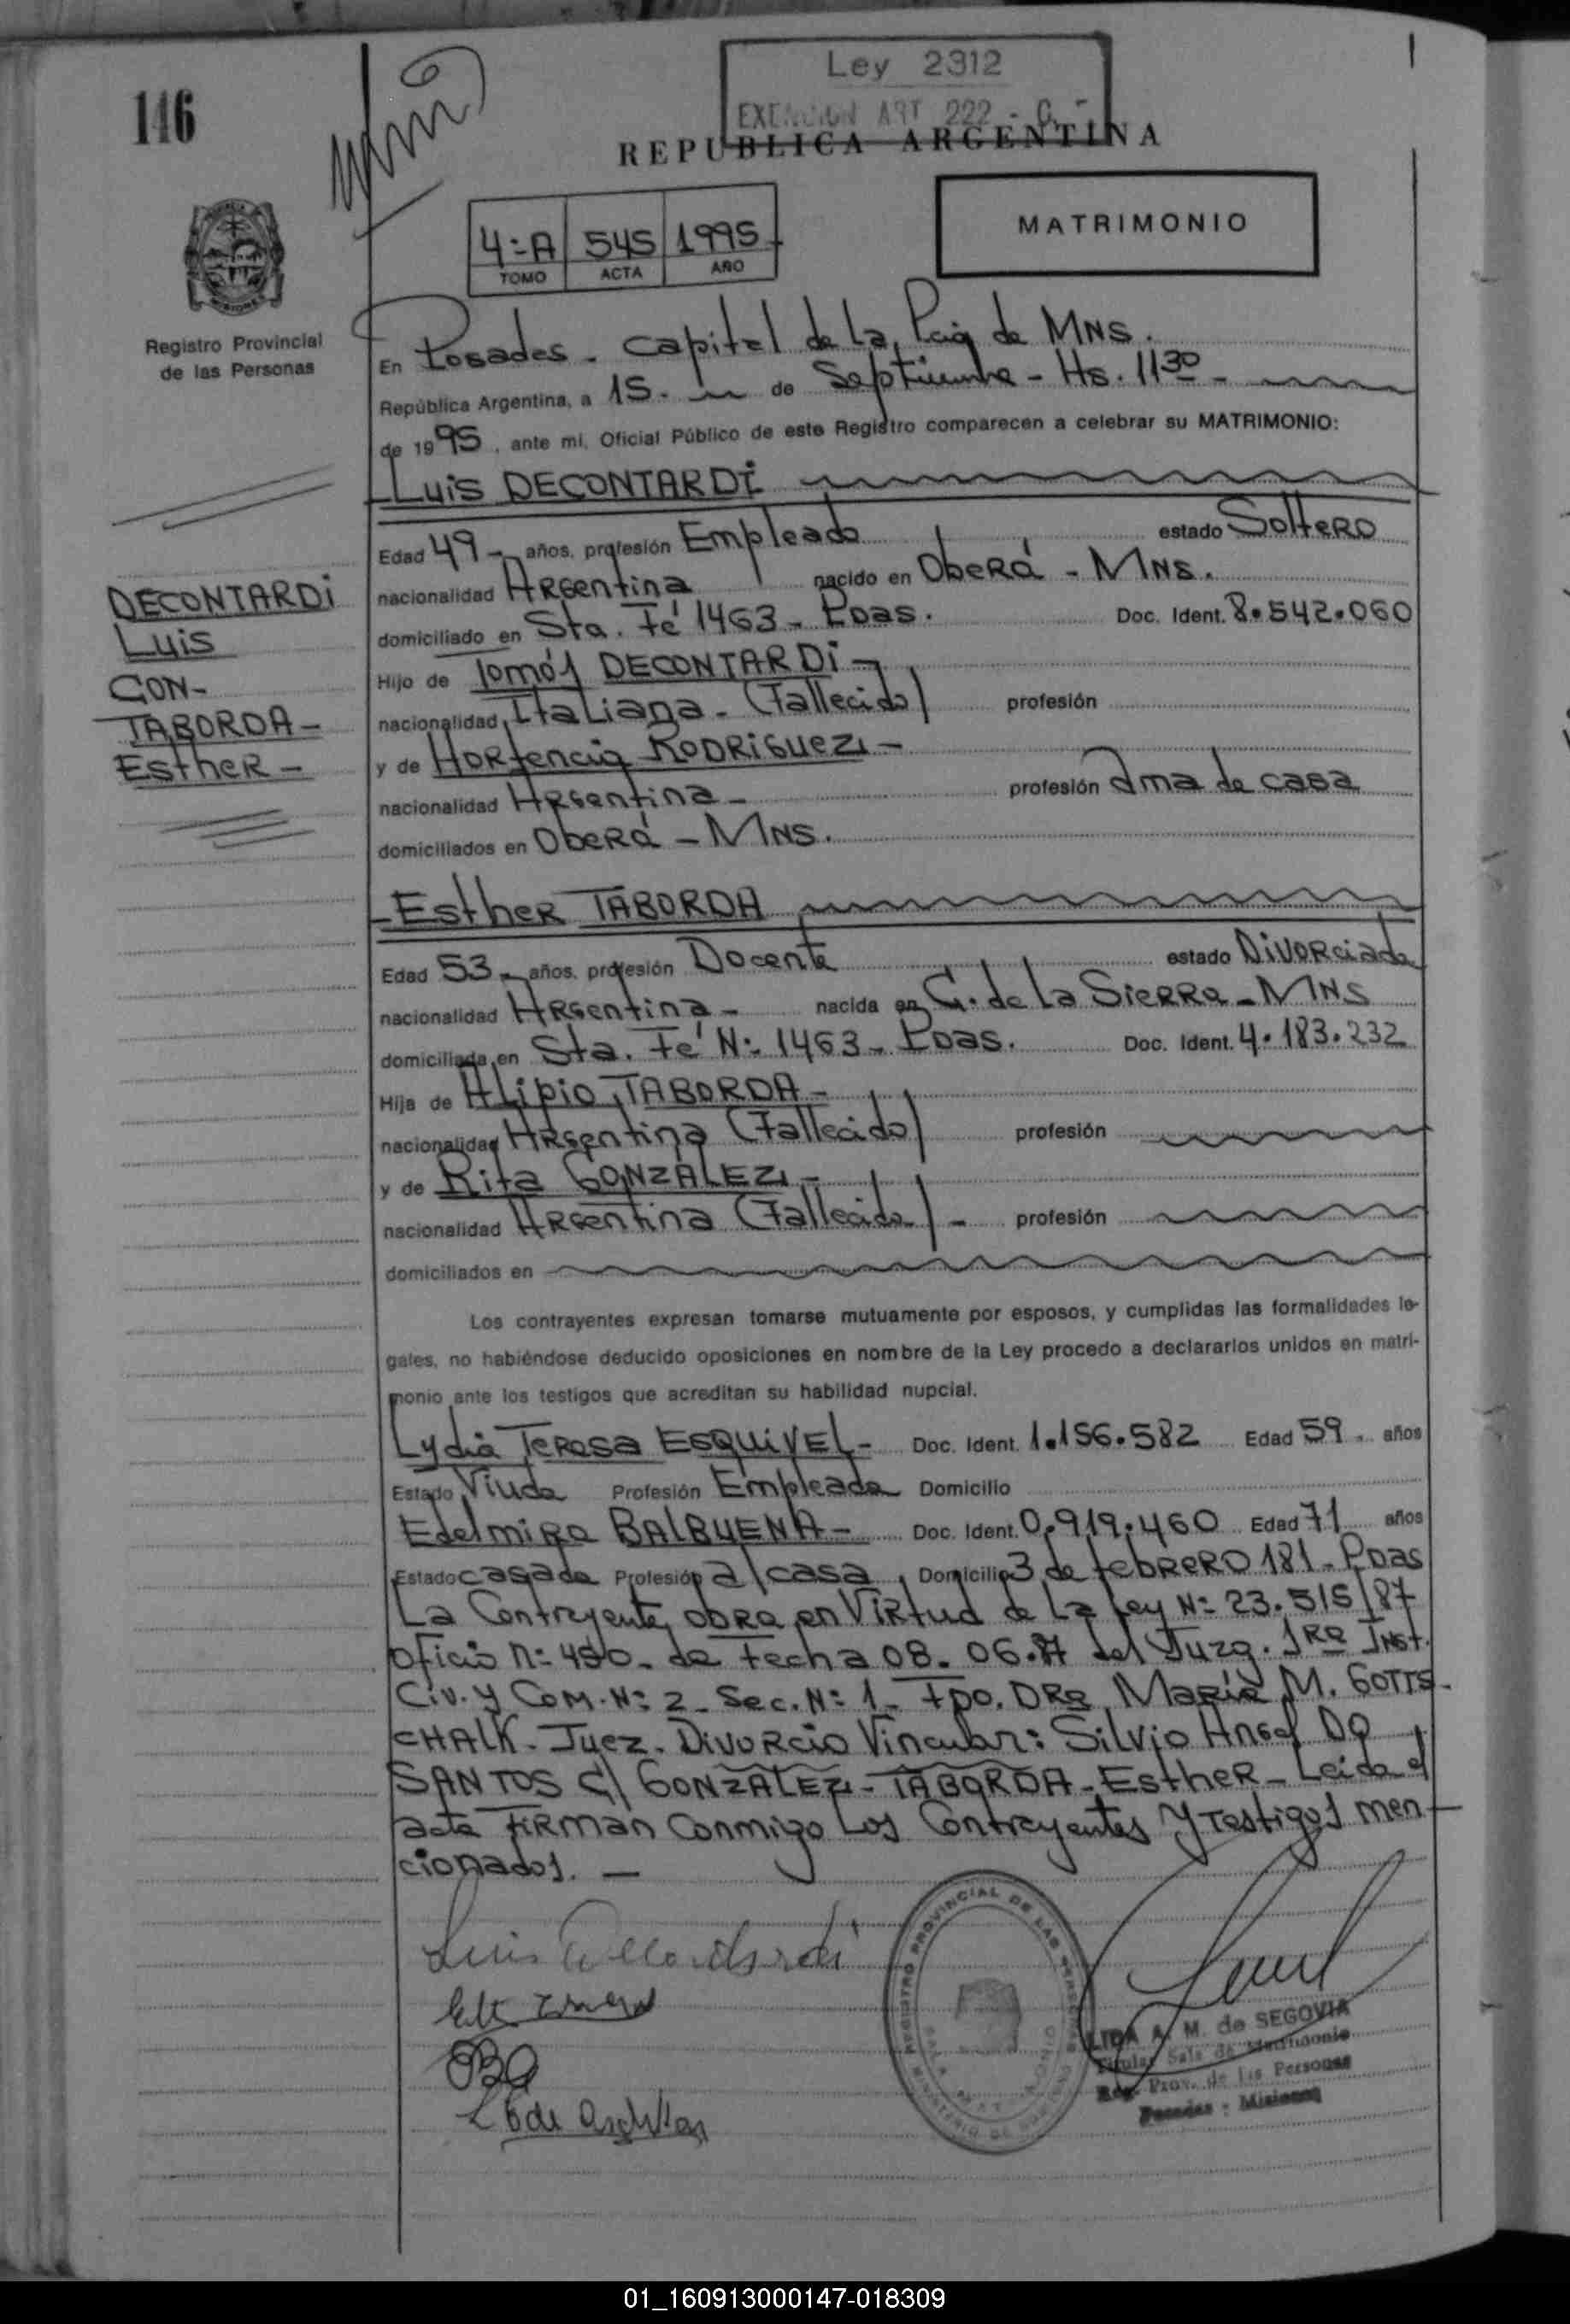 146
Ley 2312
EXENCION ART 222 - C.
REPUBLICA ARGENTINA
MATRIMONIO
4=A 545 1995
TOMO ACTA AÑO
Registro Provincial
de las Personas
En Posadas - Capital de La Pcia de MNS.
República Argentina, a 15 - de Septiembre - Hs. 11 30 -
de 1995, ante mí, Oficial Público de este Registro comparecen a celebrar su MATRIMONIO:
Luis DECONTARDI
Edad 49 - años, profesión Empleado estado Soltero
nacionalidad Argentina nacido en Oberá - MNS.
domiciliado en Sta. Fé 1463 - Pdas. Doc. Ident. 8.542.060
Hijo de Tomás DECONTARDI -
nacionalidad Italiana - (Fallecido) profesión
y de Hortencia RODRIGUEZ -
nacionalidad Argentina - profesión ama de casa
domiciliados en Oberá - MNS.
DECONTARDI
Luis
CON-
TABORDA -
Esther -
Esther TABORDA
Edad 53 - años, profesión Docente estado Divorciada
nacionalidad Argentina - nacida en C. de La Sierra - MNS
domiciliada en Sta. Fé N= 1463 - Pdas. Doc. Ident. 4.183.232
Hija de Alipio TABORDA -
nacionalidad Argentina (Fallecido) profesión
y de Rita GONZALEZ -
nacionalidad Argentina (Fallecida) - profesión
domiciliados en
Los contrayentes expresan tomarse mutuamente por esposos, y cumplidas las formalidades le-
gales, no habiéndose deducido oposiciones en nombre de la Ley procedo a declararlos unidos en matri-
monio ante los testigos que acreditan su habilidad nupcial.
Lydia Teresa ESQUIVEL - Doc. Ident. 1.156.582 Edad 59 años
Estado Viuda Profesión Empleada Domicilio
Edelmira BALBUENA - Doc. Ident. 0.919.460 Edad 71 años
Estado casada Profesión a/casa Domicilio 3 de febrero 181 - Pdas
La Contrayente obra en Virtud de La Ley N= 23.515/87
Oficio N= de Fecha 08. 06. del Juzg. 1RA Inst.
Civ. y Com. N= 2 - Sec. N= 1 - Fpo. DRA María M. GOTTS-
CHALK - Juez - Divorcio Vincular: Silvio Angel DO
SANTOS C/ GONZALEZ - TABORDA - Esther - Leida el
acta Firman Conmigo Los Contrayentes y Testigos men-
cionados. -
Luis Decontardi
REGISTRO PROVINCIAL DE LAS PERSONAS
MINISTERIO DE GOBIERNO
LIDA A. M. de SEGOVIA
Titular Sala de Matrimonio
Reg. Prov. de las Personas
Posadas - Misiones
01_160913000147-018309